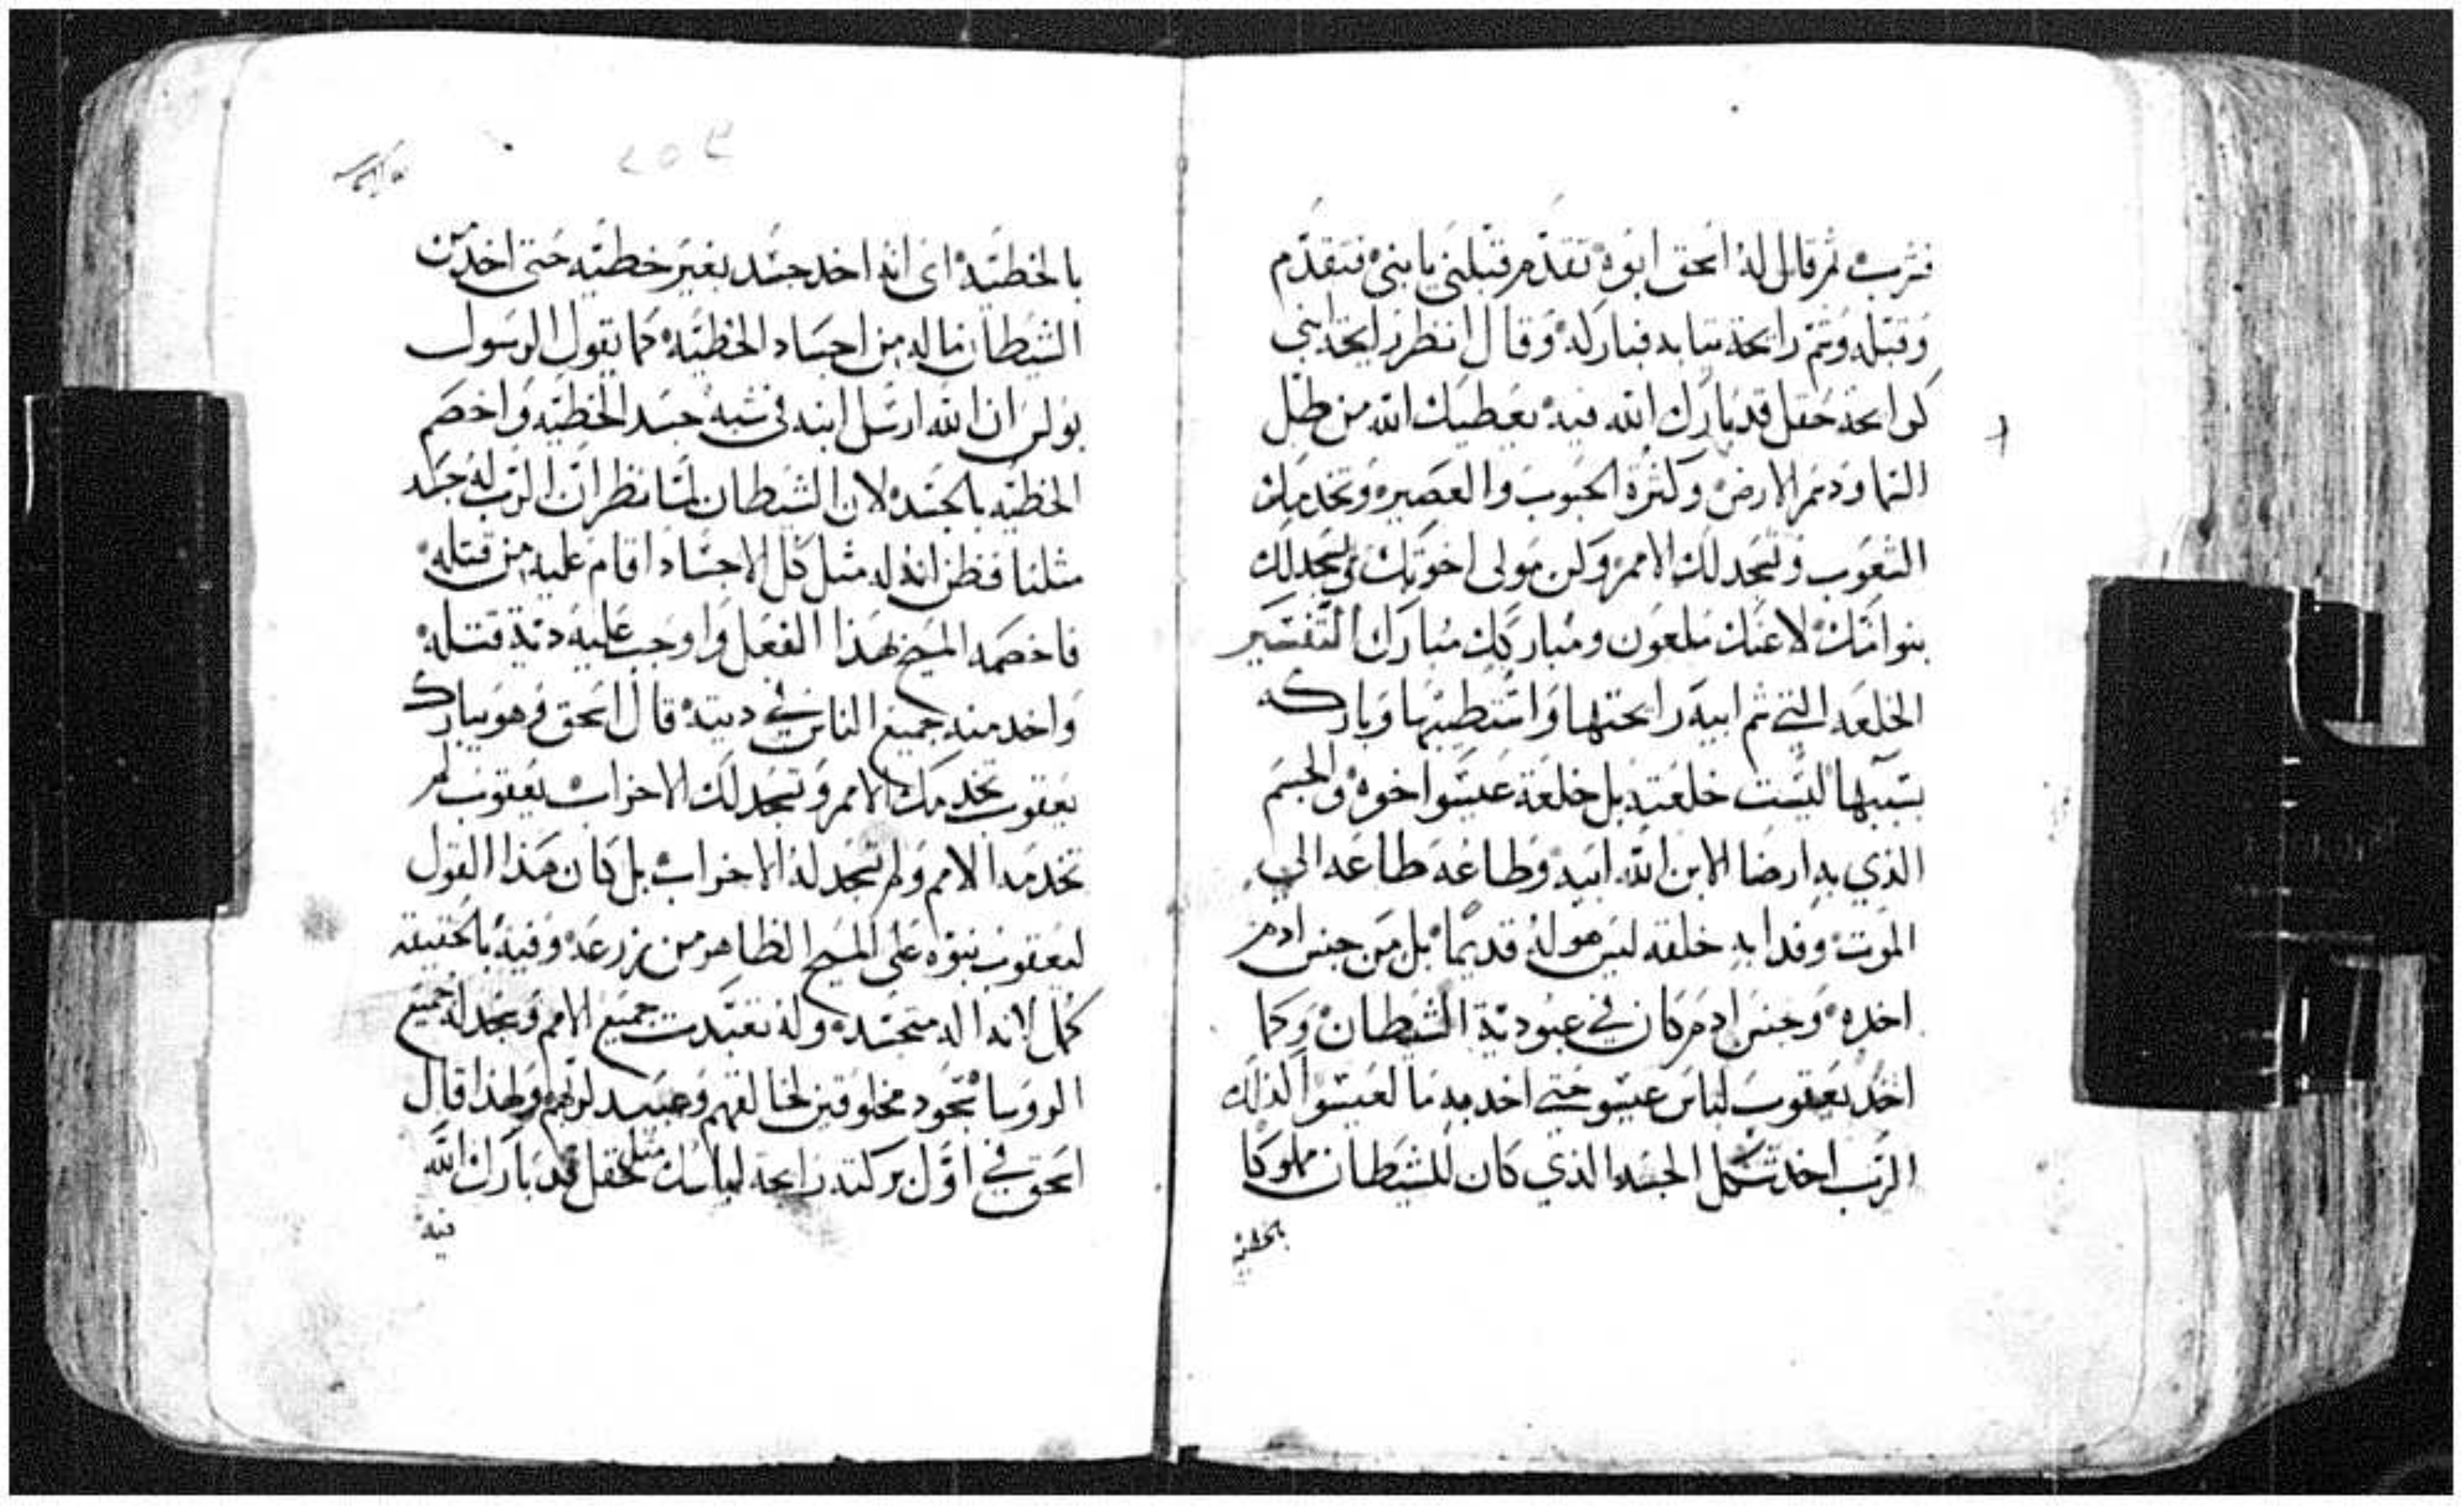 فشرب ثم قال له اسحق ابوه تقدم قبلني يا بني فتقدم
وقبله وشم رايحة تيابه فباركه وقال انظر رايحة ابني
كرايحة حقل قد بارك الله فيه يعطيك الله من طل
السما ودسم الارض وكثرة الحبوب والعصير وتخدمك
الشعوب وتسجد لك الامم وكن مولى اخوتك ويسجد لك
بنوا امك لاعنك ملعون ومباركك مبارك التفسير
الخلعه التي شم ابيه رايحتها واستطيبها وباركه
بسببها ليست خلعته بل خلعة عيسوا اخوه والجسم
الذي به ارضا الابن الله ابيه وطاعه طاعه الي
الموت وفدا به خلقه ليس هو له قديما بل من جنس ادم
اخده وجنس ادم كان في عبودية الشيطان وكما
اخد يعقوب لباس عيسو حتي اخد به ما لعيسوا لذلك
الرب اخد شكل الجسد الذي كان للشيطان مملوكا
بالخطية
بالخطيه اي انه اخد جسد بغير خطيه حتى اخد من
الشيطان ما له من اجساد الخطيه كما يقول الرسول
بولس ان الله ارسل ابنه في شبه جسد الخطيه واخصم
الخطيه بالجسد لان الشيطان لما نظر ان الرب له جسد
مثلنا فظن انه له مثل كل الاجساد اقام عليه من قتله
فاخصمه المسيح بهذا الفعل واوجب عليه دية قتله
واخد منه جميع الناس في ديته قال اسحق وهو يبارك
يعقوب تخدمك الامم وتسجد لك الاحزاب يعقوب لم
تخدمه الامم ولم تسجد له الاحزاب بل كان هذا القول
ليعقوب نبوه على المسيح الظاهر من زرعه وفيه بالحقيقه
كمل لانه اله متجسد وله تعبدت جميع الامم وسجد له جميع
الروسا سجود مخلوقين لخالقهم وعبيد لربهم ولهذا قال
اسحق في اول بركته رايحة لباسك مثل حقل قد بارك الله
فيه